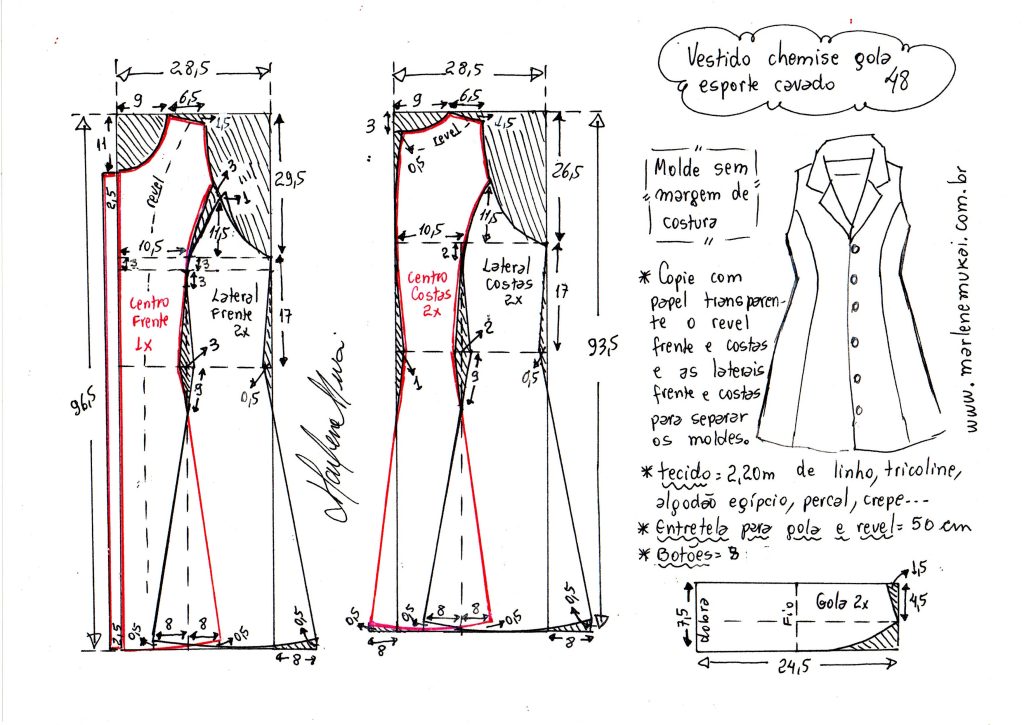 Vestido chemise gola
esporte cavado 48
28,5
9
6,5
1,5
11
2,5
revel
3
1
29,5
11,5
10,5
3
3
3
Centro
Frente
1x
Lateral
Frente
2x
17
3
9
0,5
96,5
2,5
0,5
8
8
0,5
0,5
8
28,5
9
6,5
1,5
3
revel
0,5
26,5
11,5
10,5
2
Centro
Costas
2x
Lateral
Costas
2x
17
2
1
9
0,5
93,5
0,5
8
8
0,5
0,5
0,5
8
8
Molde sem
margem de
costura
* Copie com
papel transparen-
te o revel
frente e costas
e as laterais
frente e costas
para separar
os moldes.
* tecido = 2,20m de linho, tricoline,
algodão egípcio, percal, crepe---
* Entretela para gola e revel = 50 cm
* Botões = 8
www.marlenemukai.com.br
1,5
4,5
7,5
dobra
Fio
Gola 2x
24,5